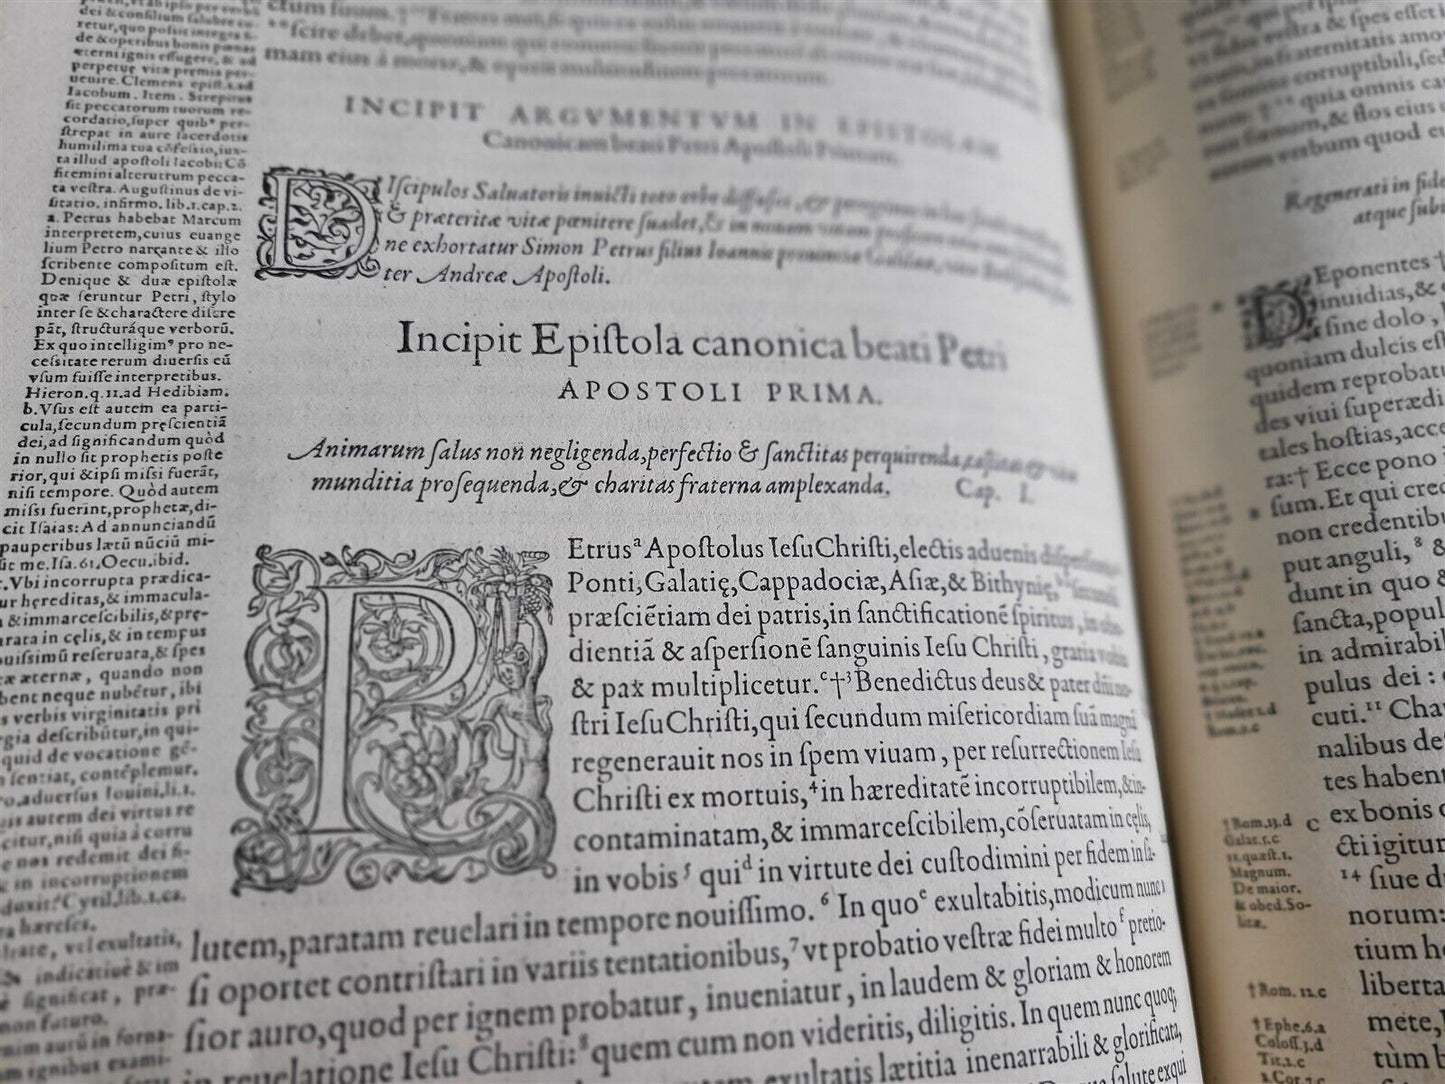 dei & consilium salubre
retur, quo possit integra
de & operibus bonis pœnas
æterni ignis effugere, & ad
perpetuę vitæ premia per-
uenire. Clemens epist.1.ad
Iacobum. Item. Strepitus
sit peccatorum tuorum re-
cordatio, super quibꝰ per-
strepat in aure sacerdotis
humilima tua cõfessio, iux-
ta illud apostoli Iacobi: Cõ
fitemini alterutrum pecca-
ta vestra. Augustinus de vi-
sitatio. infirmo. lib.1.cap.2.
a. Petrus habebat Marcum
interpretem, cuius euange
lium Petro narrante & illo
scribente compositum est.
Denique & duæ epistolæ
quæ feruntur Petri, stylo
inter se & charactere discre
pãt, structuráque verborũ.
Ex quo intelligimꝰ pro ne-
cessitate rerum diuersis eũ
vsum fuisse interpretibus.
Hieron.q.11.ad Hedibiam.
b. Vsus est autem ea parti-
cula, secundum pręscientiã
dei, ad significandum quòd
in nullo sit prophetis poste
rior, qui & ipsi missi fuerãt,
nisi tempore. Quòd autem
missi fuerint, prophetæ, di-
cit Isaias: Ad annunciandũ
pauperibus lætũ nũciũ mi-
sit me. Isa.61. Oecu. ibid.
c. Vbi incorrupta prædica-
ur hęreditas, & immacula-
& immarcescibilis, & prę-
rata in cęlis, & in tempus
ouissimũ reseruata, & spes
æternæ, quando non
bent neque nubẽtur, ibi
s verbis virginitatis pri
gia describũtur, in qui-
quid de vocatione gẽ-
sentiat, contẽplemur.
aduersus Iouini.li.1.
autem dei virtus re
citur, nisi quia à corru
nos redemit dei fi-
in incorruptionem
duxit? Cyril.lib.1.ca.
hæreses.
vel exultatis,
indicatiuè & im
significat, præ-
non futuro.
ctum suum.
scire debet, quoniam qui
mam eius à morte, &
INCIPIT ARGVMENTVM IN EPISTOLAM
Canonicam beati Petri Apostoli Primam.
DIscipulos Saluatoris inuicti toto orbe diffusos, &
& præteritæ vitæ pœnitere suadet, & in nouam vitam
ne exhortatur Simon Petrus filius Ioannis prouinciæ Galilææ,
ter Andreæ Apostoli.
Incipit Epistola canonica beati Petri
APOSTOLI PRIMA.
Animarum salus non negligenda, perfectio & sanctitas perquirenda,
munditia prosequenda, & charitas fraterna amplexanda. Cap. I.
PEtrusᵃ Apostolus Iesu Christi, electis aduenis dispersionis
Ponti, Galatię, Cappadociæ, Asiæ, & Bithynię, secundũ
præsciẽtiam dei patris, in sanctificationẽ spiritus, in obe
dientiã & aspersionẽ sanguinis Iesu Christi, gratia vobis
& pax multiplicetur.ᶜ†³ Benedictus deus & pater dñi no-
stri Iesu Christi, qui secundum misericordiam suã magnã
regenerauit nos in spem viuam, per resurrectionem Iesu
Christi ex mortuis,⁴ in hæreditatẽ incorruptibilem, & in-
contaminatam, & immarcescibilem, cõseruatam in cęlis,
in vobis⁵ quiᵈ in virtute dei custodimini per fidem in sa-
lutem, paratam reuelari in tempore nouissimo.⁶ In quoᵉ exultabitis, modicum nunc
si oportet contristari in variis tentationibus,⁷ vt probatio vestræ fidei multoᶠ pretio-
sior auro, quod per ignem probatur, inueniatur, in laudem & gloriam & honorem
in reuelatione Iesu Christi:⁸ quem cum non videritis, diligitis. In quem nunc quoq;
exultabitis lætitia inenarrabili & glorificata,
salute exqui
vestra & spes esset
in fraternitatis amo
corruptibili, sed
† quia omnis ca
fœnum, & flos eius
verbum quod
Regenerati in fide
atque subi
DEponentes †
inuidias, &
sine dolo,
quoniam dulcis est
quidem reprobatu
des viui superædi
tales hostias, acce
ra:† Ecce pono i
sum. Et qui cred
non credentibu
put anguli,⁸ &
dunt in quo &
sancta, popul
in admirabil
pulus dei:
cuti.¹¹ Cha
nalibus de
tes habent
ex bonis
cti igitur
¹⁴ siue d
norum:
tium h
liberta
mete,
tùm
†Rom.13.d
Galat.5.c
11.quæst.1.
Magnum.
De maior.
& obed. So-
litæ.
C
†Rom. 12.c
†Ephe.6.a
Coloss.3.d
Tit.2.c